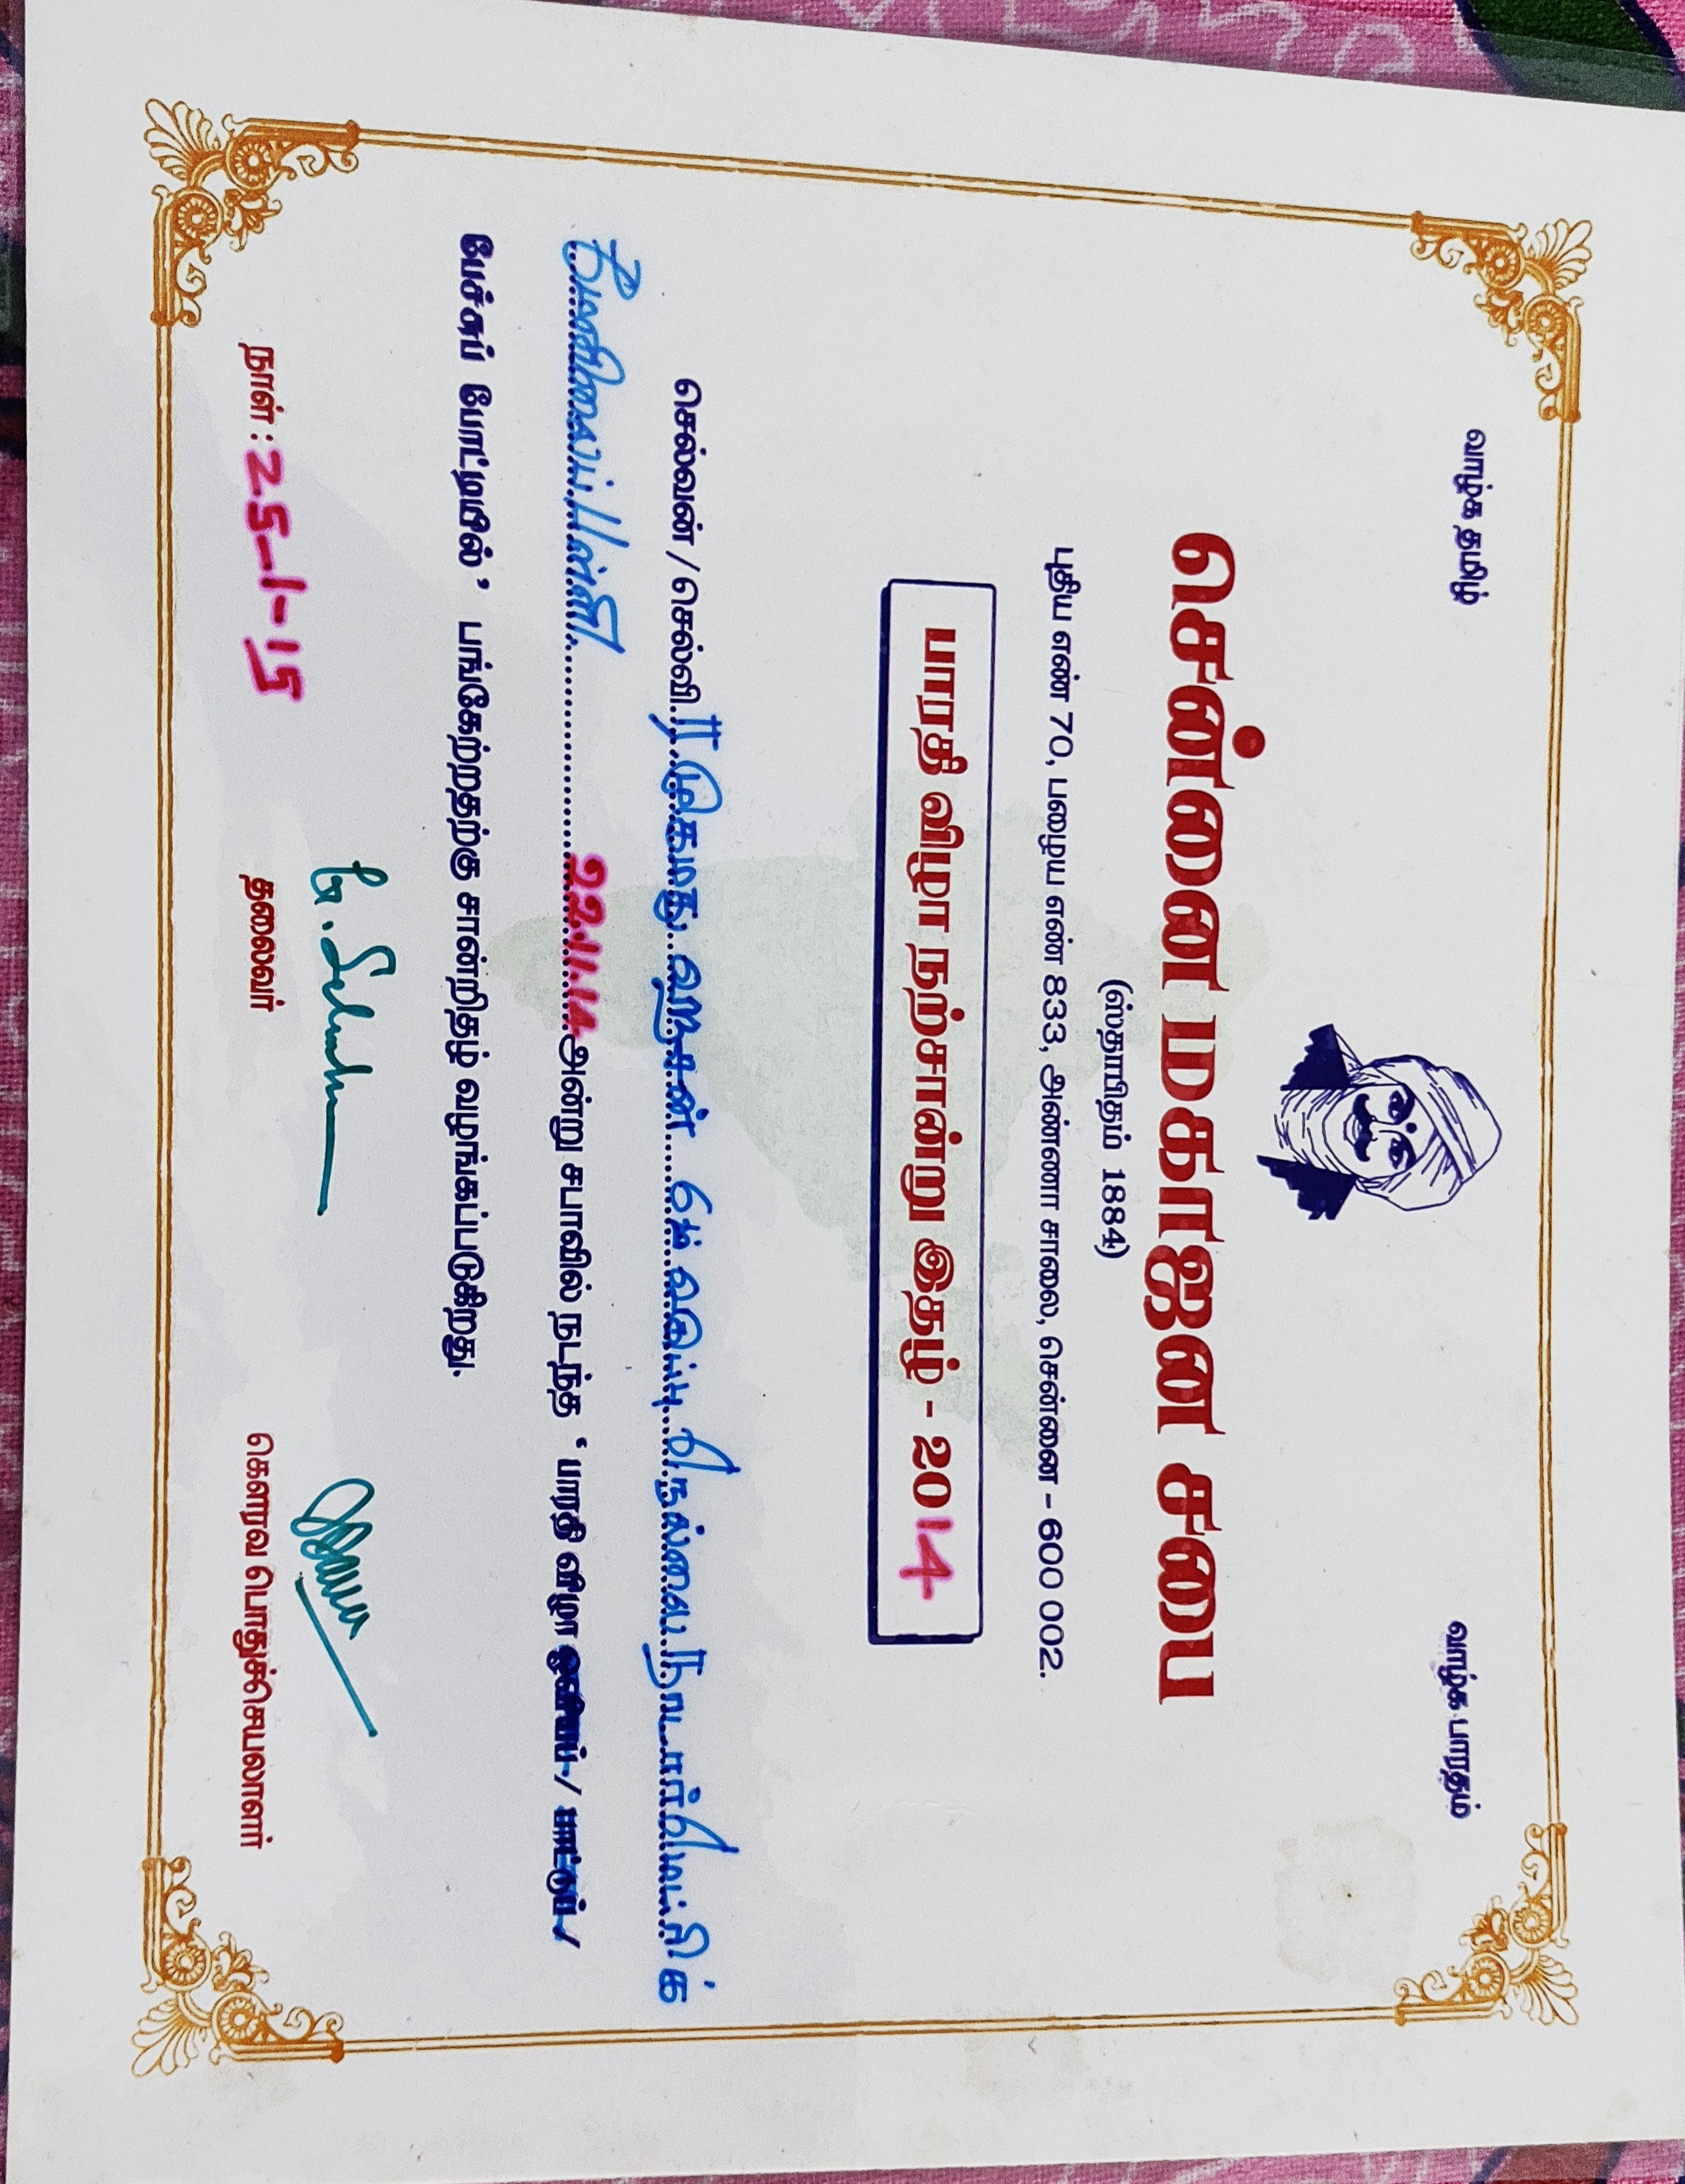 வாழ்க தமிழ் வாழ்க பாரதம்
சென்னை மகாஜன சபை
(ஸ்தாபிதம் 1884)
புதிய எண் 70, பழைய எண் 833, அண்ணா சாலை, சென்னை - 600 002.
பாரதி விழா நற்சான்று இதழ் - 2014
செல்வன் / செல்வி. முகமது ஹாசன் 6ம் வகுப்பு நெல்லை நாடார் மெட்ரிக்
மேனிலைப் பள்ளி 22.11.14 அன்று சபாவில் நடந்த ‘பாரதி விழா ஓவியப் / பாட்டுப் /
பேச்சுப் போட்டியில்’ பங்கேற்றதற்கு சான்றிதழ் வழங்கப்படுகிறது.
நாள் : 25-1-15 தலைவர் கௌரவ பொதுச்செயலாளர்